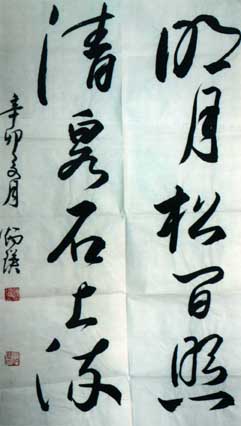 明月松间照
清泉石上流
辛卯文月